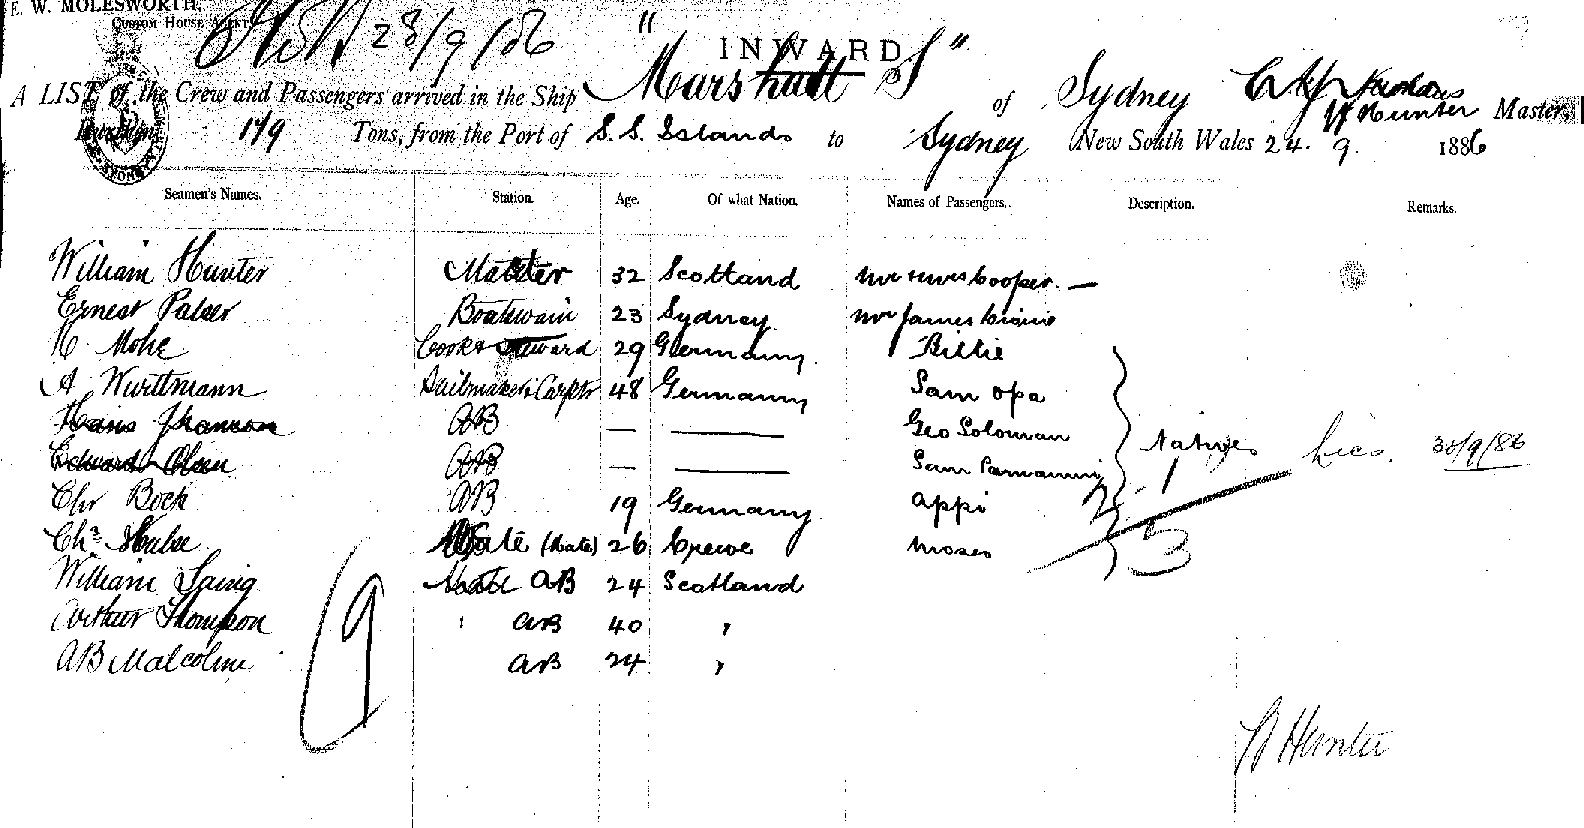 E. W. MOLESWORTH,
CUSTOM HOUSE
28/9/86
INWARD
A LIST of the Crew and Passengers arrived in the Ship "Marshall S" of Sydney Master,
W Hunter
Burthen 179 Tons, from the Port of S. S. Islands to Sydney New South Wales 24. 9. 1886
Seamen's Names. Station. Age. Of what Nation. Names of Passengers. Description. Remarks.
William Hunter Master 32 Scotland Mr & Mrs Cooper. —
Ernest Palser Boatswain 23 Sydney Mr James
H. Mohe Cook & Steward 29 Germany Billie
A Wurttmann Sailmaker & Carptr 48 Germany Sam Opa
Hans AB — — Geo Soloman
Edward Olsen AB — — Sam Pamanini Natives 30/9/86
Chr Bock AB 19 Germany Appi 2 - 1
Chs Hulse Mate (Mate) 26 Crewe Moses 3
William Laing AB 24 Scotland
Arthur Thompson AB 40 "
AB Malcolm AB 24 "
9
W Hunter